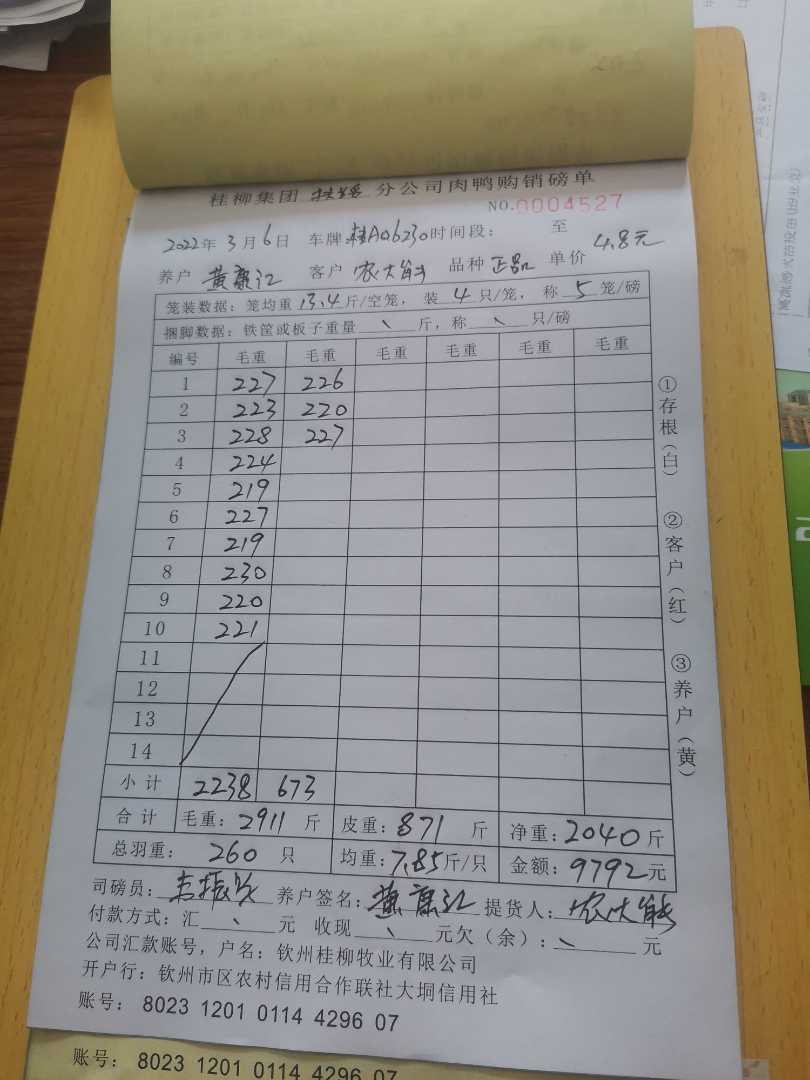 桂柳集团 扶绥 分公司肉鸭购销磅单
NO.0004527
2022年 3月 6日 车牌 桂A06230 时间段： 至
养户 黄康江 客户 农大能 品种 正品 单价 4.8元
笼装数据：笼均重 13.4 斤/空笼，装 4 只/笼，称 5 笼/磅
捆脚数据：铁筐或板子重量 、 斤，称 、 只/磅
编号 毛重 毛重 毛重 毛重 毛重 毛重
1 227 226
2 223 220
3 228 227
4 224
5 219
6 227
7 219
8 230
9 220
10 221
11
12
13
14
小计 2238 673
合计 毛重：2911 斤 皮重：871 斤 净重：2040斤
总羽重： 260 只 均重：7.85斤/只 金额：9792元
司磅员： 养户签名：黄康江 提货人：农大能
付款方式：汇 、 元 收现 、 元欠（余）：、 元
公司汇款账号，户名：钦州桂柳牧业有限公司
开户行：钦州市区农村信用合作联社大垌信用社
账号： 8023 1201 0114 4296 07
账号： 8023 1201 0114 4296 07
①存根（白）
②客户（红）
③养户（黄）